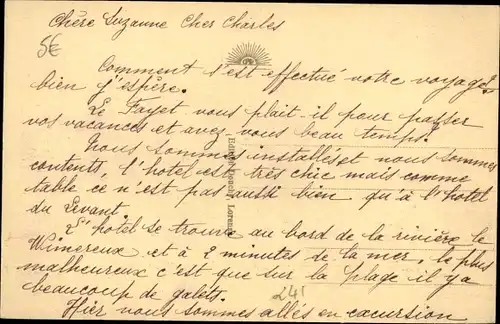 Chère Suzanne Cher Charles
5€
Comment s'est effectué votre voyage?
bien j'espère.
Le Fayet vous plait-il pour passer
vos vacances et avez-vous beau temps?
Nous sommes installés et nous sommes
contents, l'hotel est très chic mais comme
table ce n'est pas aussi bien qu'à l'hotel
du Levant.
L'hotel se trouve au bord de la rivière le
Wimereux et à 2 minutes de la mer, le plus
malheureux c'est que sur la plage il y a
beaucoup de galets.
241
Hier nous sommes allés en excursion